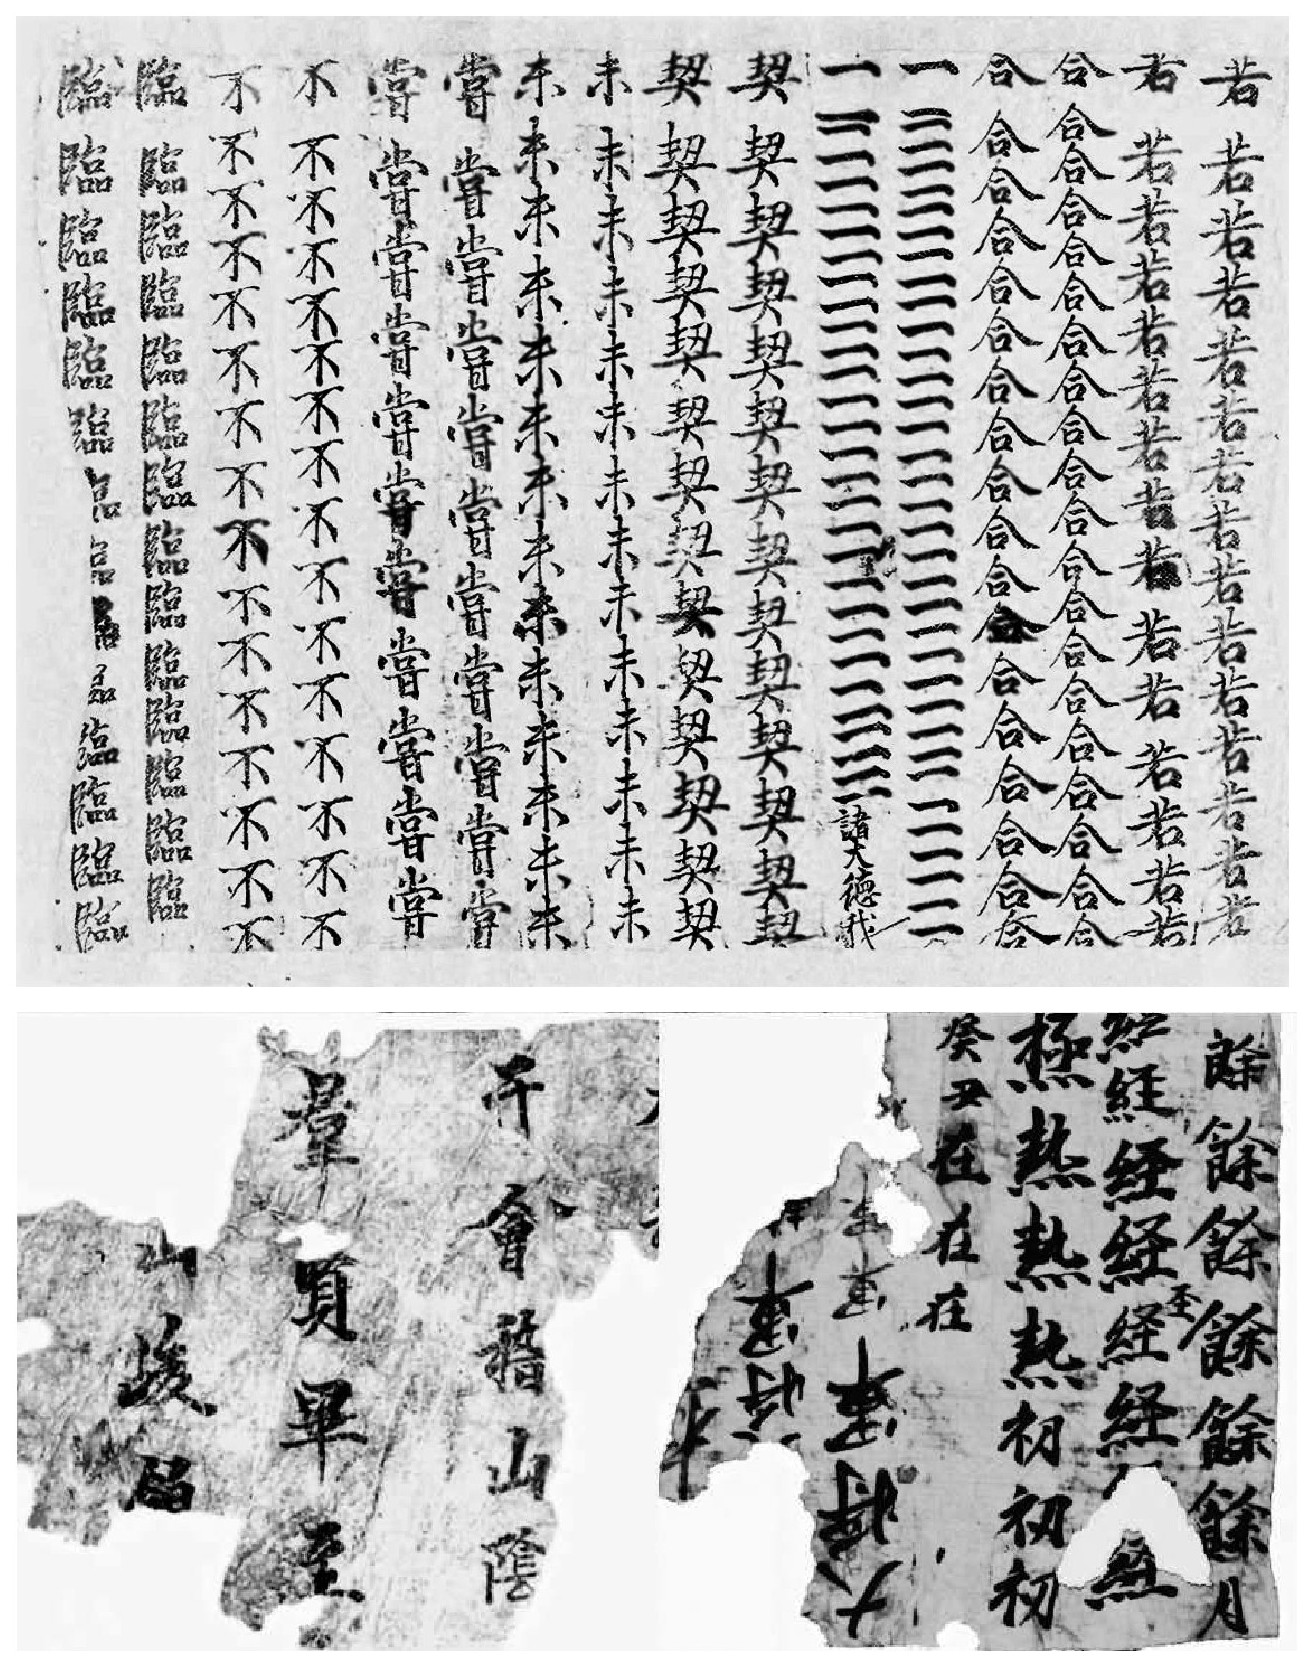 若若若若若若若若若若若若若若若
若若若若若若若若若若若若若若若
合合合合合合合合合合合合合合合合合合合合
合合合合合合合合合合合合合合合合合合
一一一一一一一一一一一一一一一一一一一一一一一一一一一一一一一一一一一一
一一一一一一一一一一一一一一一一一一一一一一一一一一一一一一一諸大德我
契契契契契契契契契契契契契契
契契契契契契契契契契契契契契
未未未未未未未未未未未未未未
未未未未未未未未未未未未未未
嘗嘗嘗嘗嘗嘗嘗嘗嘗嘗嘗
嘗嘗嘗嘗嘗嘗嘗嘗嘗嘗嘗
不不不不不不不不不不不不不不不不
不不不不不不不不不不不不不不不不
臨臨臨臨臨臨臨臨臨臨臨臨臨臨
臨臨臨臨臨臨臨臨臨臨臨臨臨臨
餘餘餘餘餘餘月
至
経経経経経経経
極熱熱熱初初初
癸丑在在在
于會稽山陰
羣賢畢至
山峻